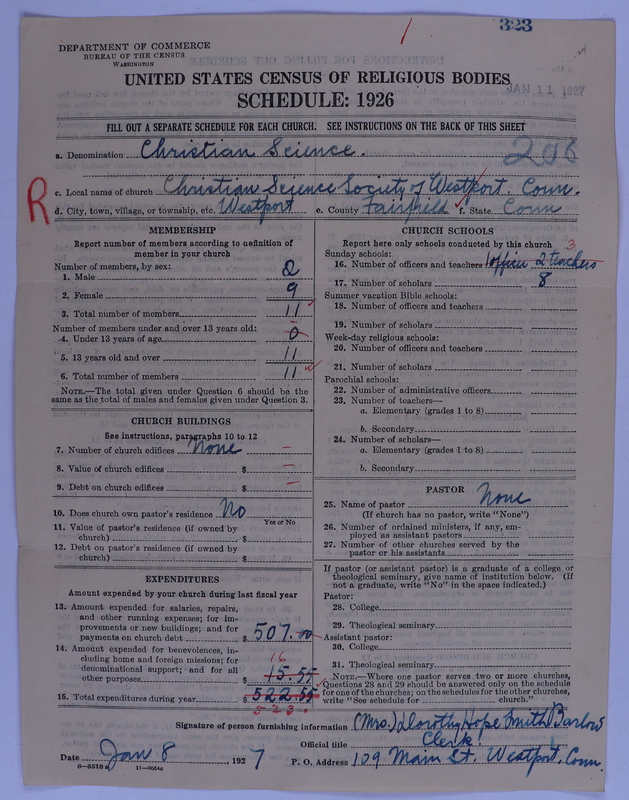 323
DEPARTMENT OF COMMERCE
BUREAU OF THE CENSUS
WASHINGTON
UNITED STATES CENSUS OF RELIGIOUS BODIES
JAN 11 1927
SCHEDULE: 1926
FILL OUT A SEPARATE SCHEDULE FOR EACH CHURCH. SEE INSTRUCTIONS ON THE BACK OF THIS SHEET
a. Denomination Christian Science. 206
R
c. Local name of church Christian Science Society of Westport, Conn.
d. City, town, village, or township, etc. Westport e. County Fairfield f. State Conn
MEMBERSHIP
Report number of members according to definition of
member in your church
Number of members, by sex:
1. Male 2
2. Female 9
3. Total number of members 11
Number of members under and over 13 years old:
4. Under 13 years of age 0
5. 13 years old and over 11
6. Total number of members 11
NOTE.—The total given under Question 6 should be
same as the total of males and females given under Question 3.
CHURCH BUILDINGS
See instructions, paragraphs 10 to 12
7. Number of church edifices None —
8. Value of church edifices $ —
9. Debt on church edifices $ —
10. Does church own pastor's residence No
Yes or No
11. Value of pastor's residence (if owned by
church) $
12. Debt on pastor's residence (if owned by
church) $
EXPENDITURES
Amount expended by your church during last fiscal year
13. Amount expended for salaries, repairs,
and other running expenses; for im-
provements or new buildings; and for
payments on church debt $ 507.00
14. Amount expended for benevolences, in-
cluding home and foreign missions; for
denominational support; and for all
other purposes $ 15.55
16
15. Total expenditures during year $ 522.55
523.
CHURCH SCHOOLS
Report here only schools conducted by this church
Sunday schools: 3
16. Number of officers and teachers 1 officer 2 teachers
17. Number of scholars 8
Summer vacation Bible schools:
18. Number of officers and teachers
19. Number of scholars
Week-day religious schools:
20. Number of officers and teachers
21. Number of scholars
Parochial schools:
22. Number of administrative officers
23. Number of teachers—
a. Elementary (grades 1 to 8)
b. Secondary
24. Number of scholars—
a. Elementary (grades 1 to 8)
b. Secondary
PASTOR
25. Name of pastor None
(If church has no pastor, write "None")
26. Number of ordained ministers, if any, em-
ployed as assistant pastors
27. Number of other churches served by the
pastor or his assistants
If pastor (or assistant pastor) is a graduate of a college or
theological seminary, give name of institution below. (If
not a graduate, write "No" in the space indicated.)
Pastor:
28. College
29. Theological seminary
Assistant pastor:
30. College
31. Theological seminary
NOTE.—Where one pastor serves two or more churches,
Questions 28 and 29 should be answered only on the schedule
for one of the churches; on the schedules for the other churches,
write "See schedule for church."
Signature of person furnishing information (Mrs.) Dorothy Hope Smith Barlow
Official title Clerk.
Date Jan 8, 1927 P. O. Address 109 Main St. Westport, Conn.